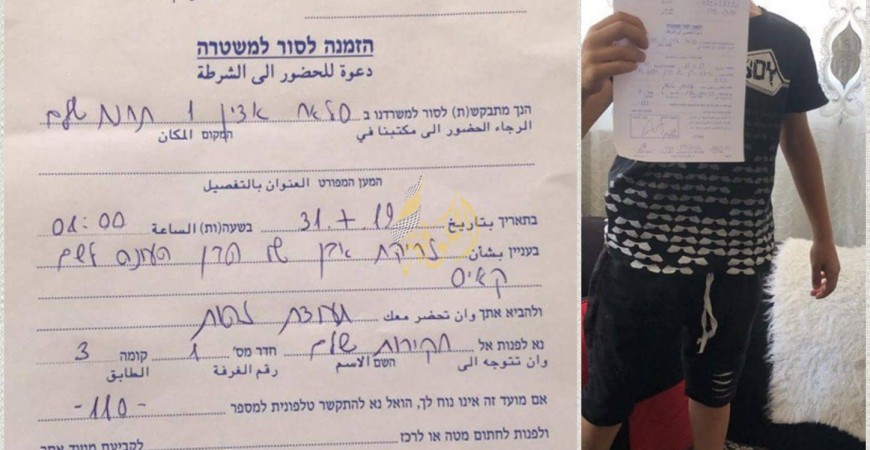 הזמנה לסור למשטרה
دعوة للحضور الى الشرطة
הנך מתבקש(ת) לסור למשרדנו ב סלאח אדין 1 תחנת שלם
الرجاء الحضور الى مكتبنا في המקום المكان
המען המפורט العنوان بالتفصيل
בתאריך بتاريخ 31.7.19 בשעה(ות) الساعة 08:00
בעניין بشأن זריקת אבן של הבן העונה לשם
קאיס
ולהביא אתך وان تحضر معك תעודת זהות
נא לפנות אל חקירות שלם חדר מס' 1 קומה 3
وان تتوجه الى השם الاسم رقم الغرفة الطابق
אם מועד זה אינו נוח לך, הואל נא להתקשר טלפונית למספר -110-
ולפנות לחתום מטה או לרכז לקביעת מועד אחר
הזמנה לסור למשטרה
BOY